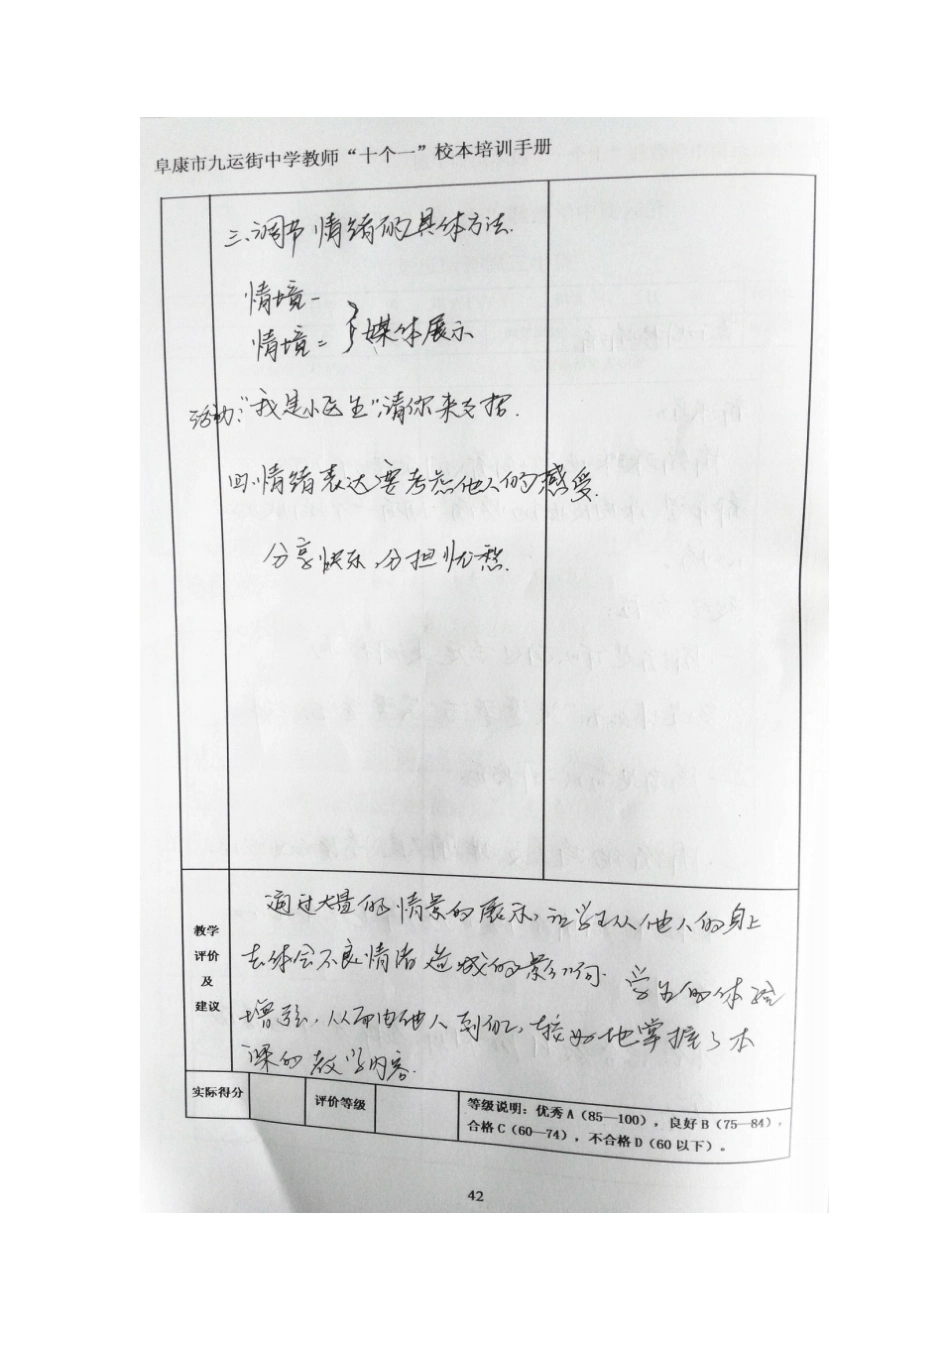 阜康市九运街中学教师“十个一”校本培训手册
三、调节情绪的具体方法.
情境一
情境二 } 媒体展示
活动:“我是小医生”,请你来支招.
四.情绪表达要考虑他人的感受.
分享快乐,分担忧愁.
教学
评价
及
建议
通过大量的情景的展示,让学生从他人的身上
去体会不良情绪造成的影响. 学生的体验
增强,从而由他人到自己,较好地掌握了本
课的教学内容.
实际得分
评价等级
等级说明:优秀A(85—100),良好B(75—84),
合格C(60—74),不合格D(60以下)。
42